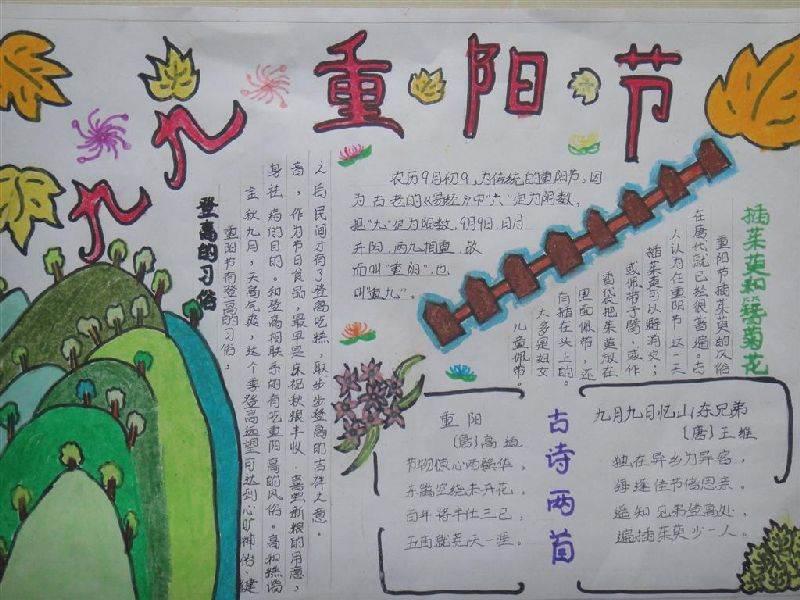 九九重阳节
农历9月初9,为传统的重阳节,因
为古老的《易经》中"六"定为阴数,
把"九"定为阳数,9月9日,日月
并阳,两九相重,故
而叫"重阳",也
叫"重九"。
登高的习俗
重阳节有登高的习俗,
金秋九月,天高气爽,这个季登高远望可达到心旷神怡、健
身祛病的目的。和登高相联系的有吃重阳高的风俗。高和糕谐
音,作为节日食品,最早是庆祝秋粮丰收、喜尝新粮的用意,
之后民间才有了登高吃糕,取步步登高的吉祥之意。
插茱萸和簪菊花
重阳节插茱萸的风俗
在唐代就已经很普遍。古
人认为在重阳节这一天
插茱萸可以避消灾;
或佩带于臂,或作
香袋把茱萸放在
里面佩带,还
有插在头上的。
大多是妇女
儿童佩带。
古诗两首
重阳
(唐)高
节物惊心两鬓华,
东篱空绕未开花。
百年将半仕三已,
五亩就荒天一涯。
九月九日忆山东兄弟
(唐)王维
独在异乡为异客,
每逢佳节倍思亲。
遥知兄弟登高处,
遍插茱萸少一人。